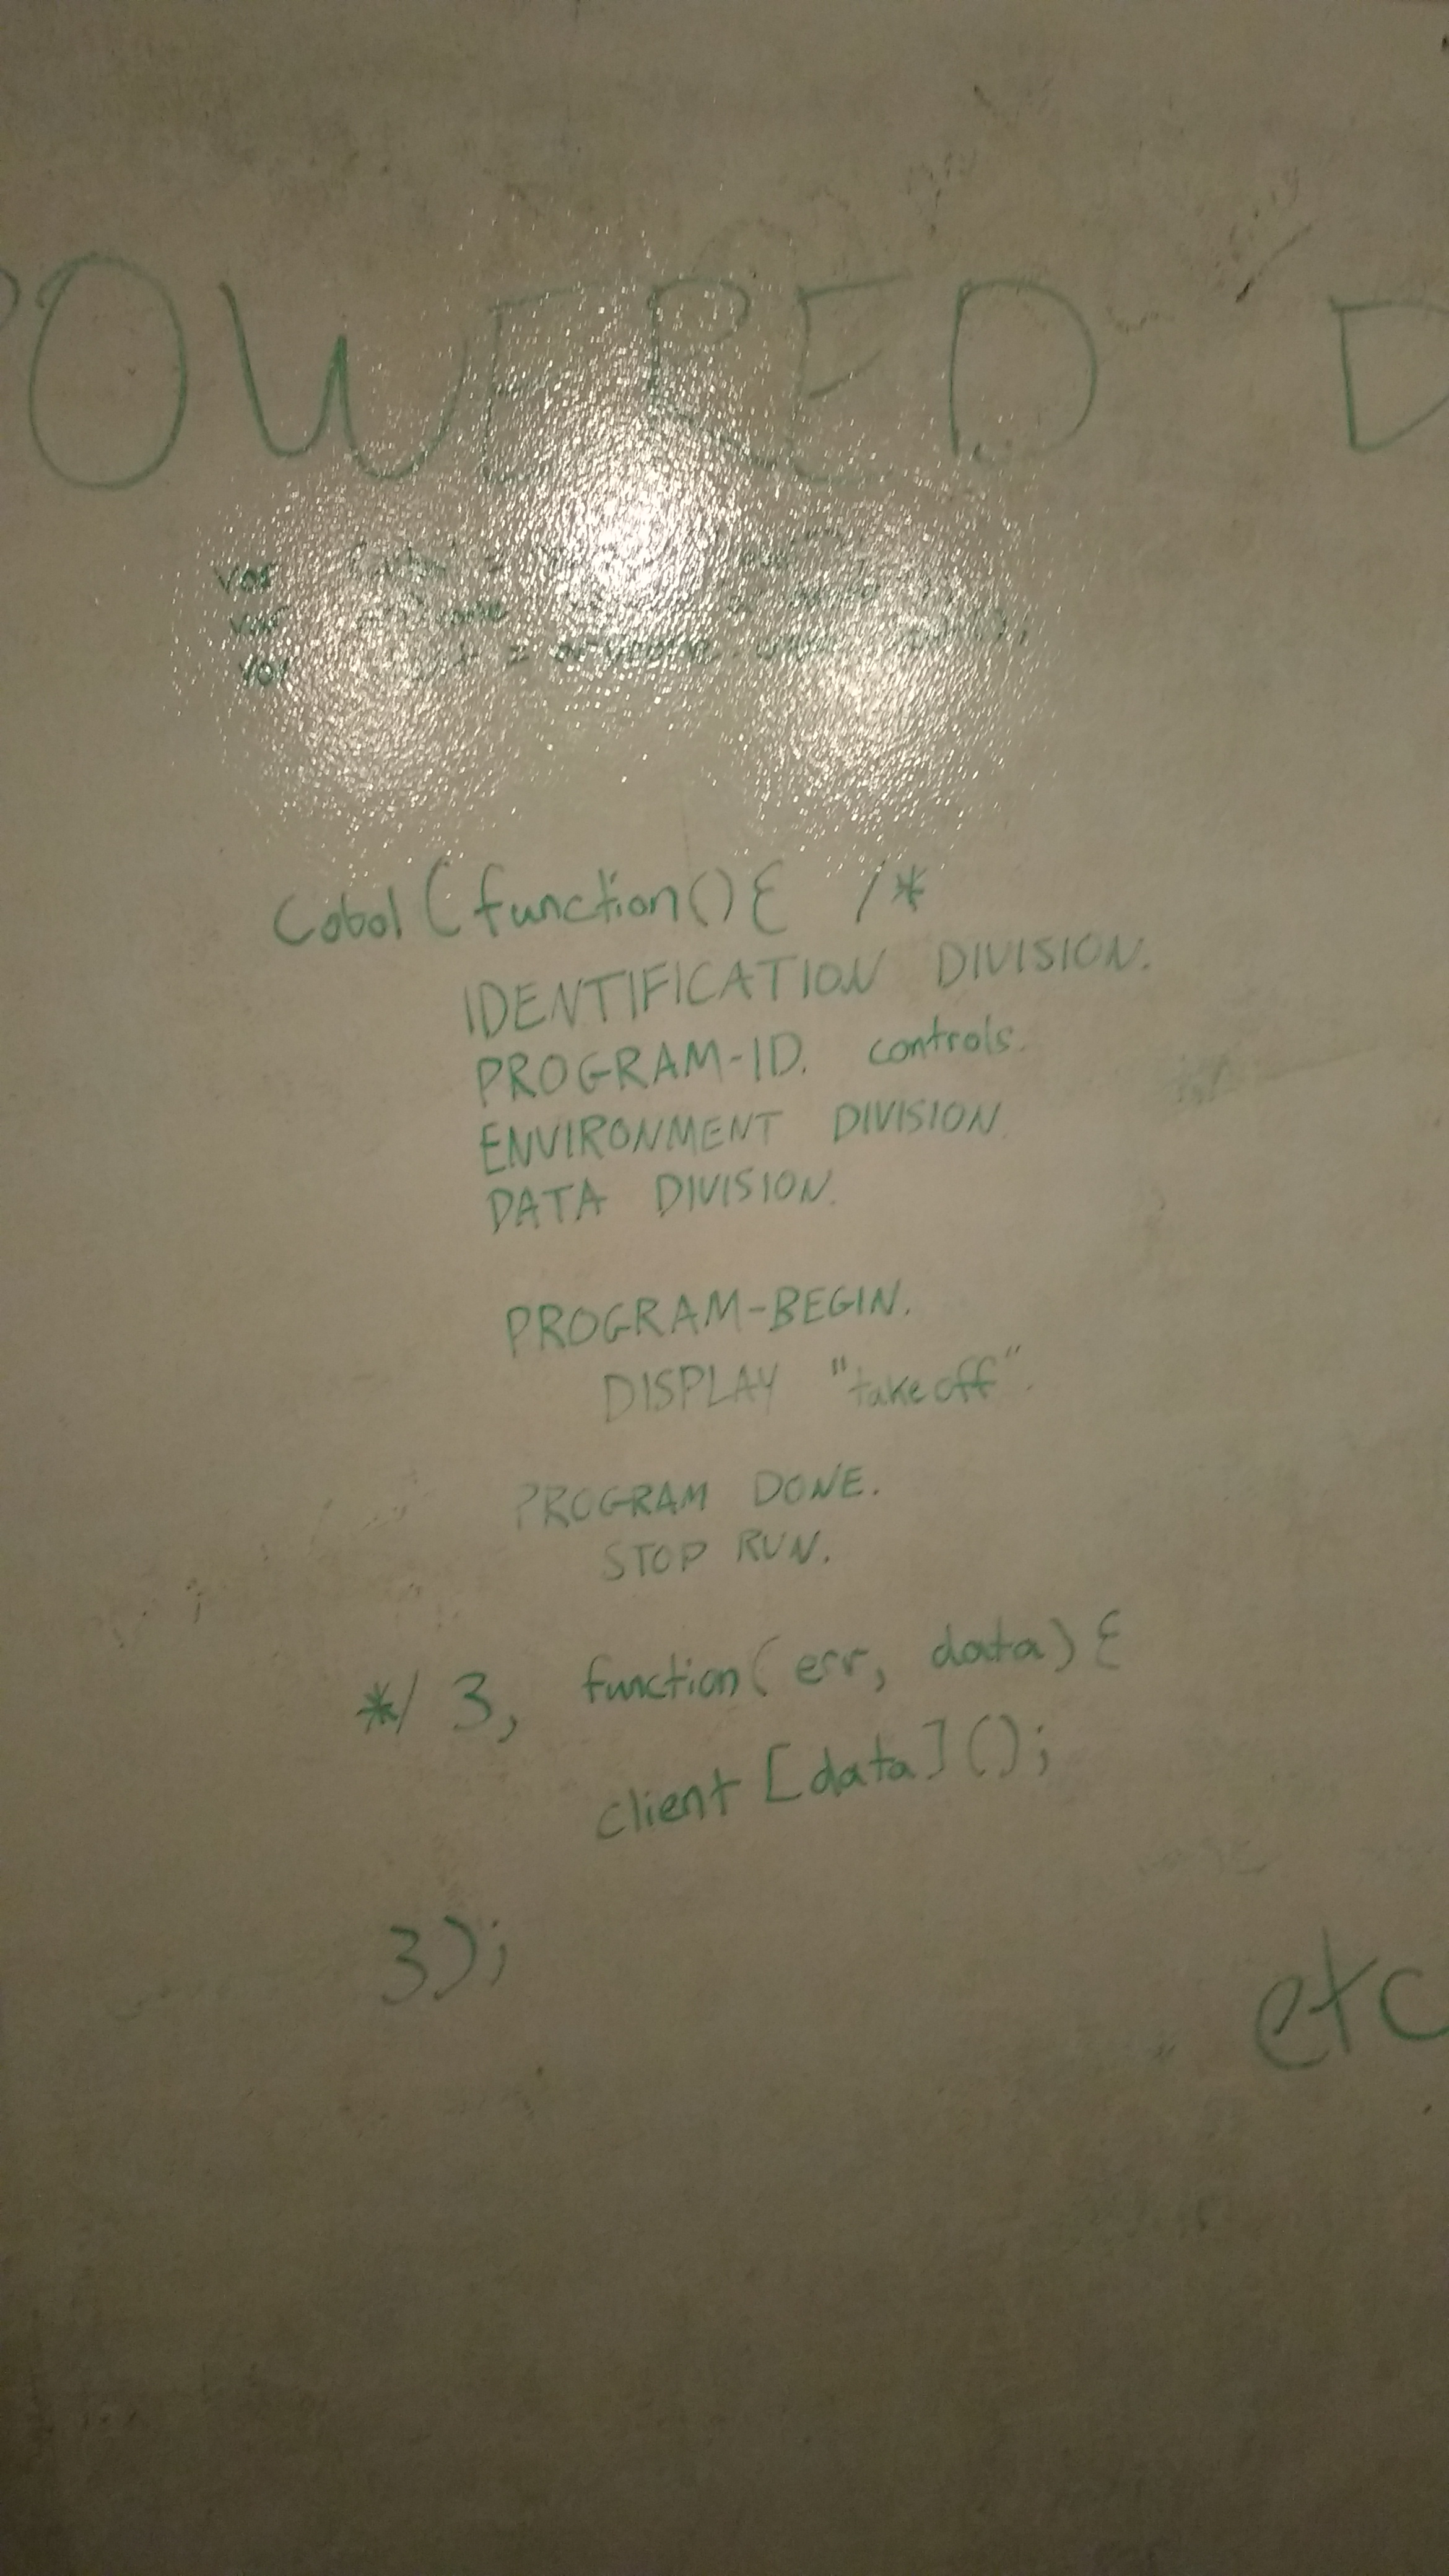 POWERED D
var
var
var = ardrone.
Cobol (function(){ /*
IDENTIFICATION DIVISION.
PROGRAM-ID. controls.
ENVIRONMENT DIVISION.
DATA DIVISION.
PROGRAM-BEGIN.
DISPLAY "takeoff".
PROGRAM DONE.
STOP RUN.
*/ }, function(err, data){
client [data]();
});
etc